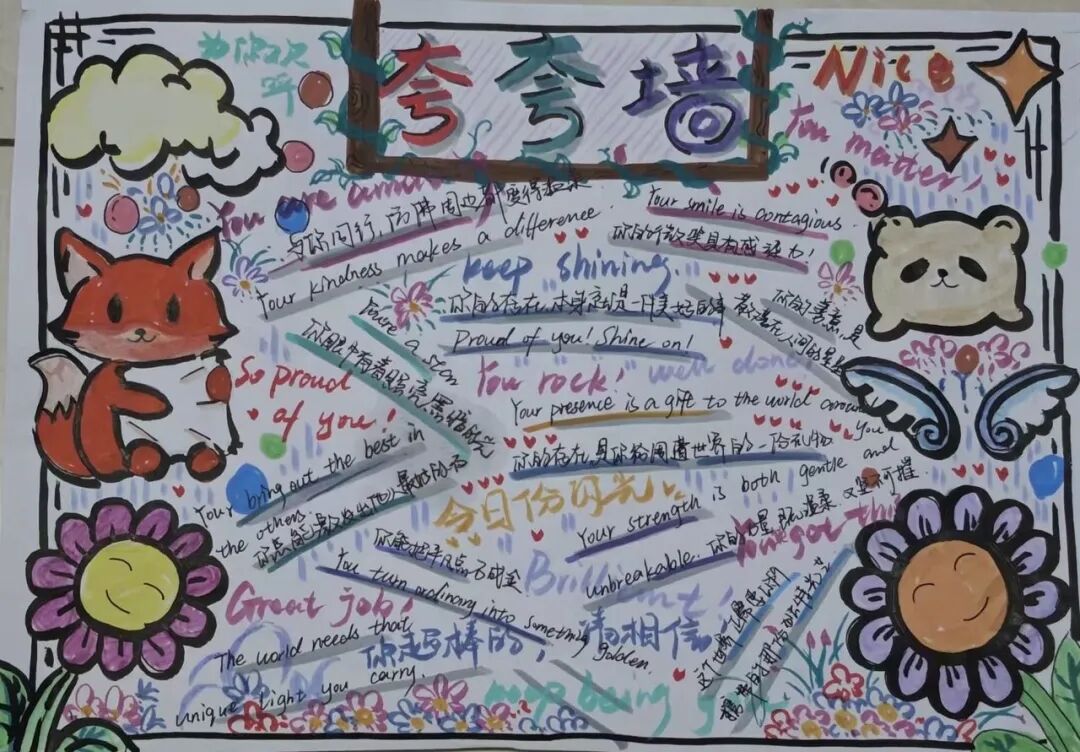 夸夸墙
为你欢
呼
Nice
You matter!
You are
与你同行,
Your kindness makes a difference.
Your smile is contagious.
你的
keep shining.
你的存在,本身就是一件美好的事
Proud of you! Shine on!
You're a star
你眼中有着照亮黑暗的光
你的善意,是
So proud
of you!
You rock!
well done
Your presence is a gift to the world around you
你的存在,是你给周围世界的一份礼物
Your bring out the best in
the others.
你总能激发出他人最好的
今日份闪光
Your strength is both gentle and
unbreakable.
你的坚强,温柔又坚不可摧
You got this
你能把平凡点石成金
You turn ordinary into something golden.
Brilliant!
Great job!
The world needs that
unique light you carry.
你超棒的,请相信!
这个世界正需要你
keep being